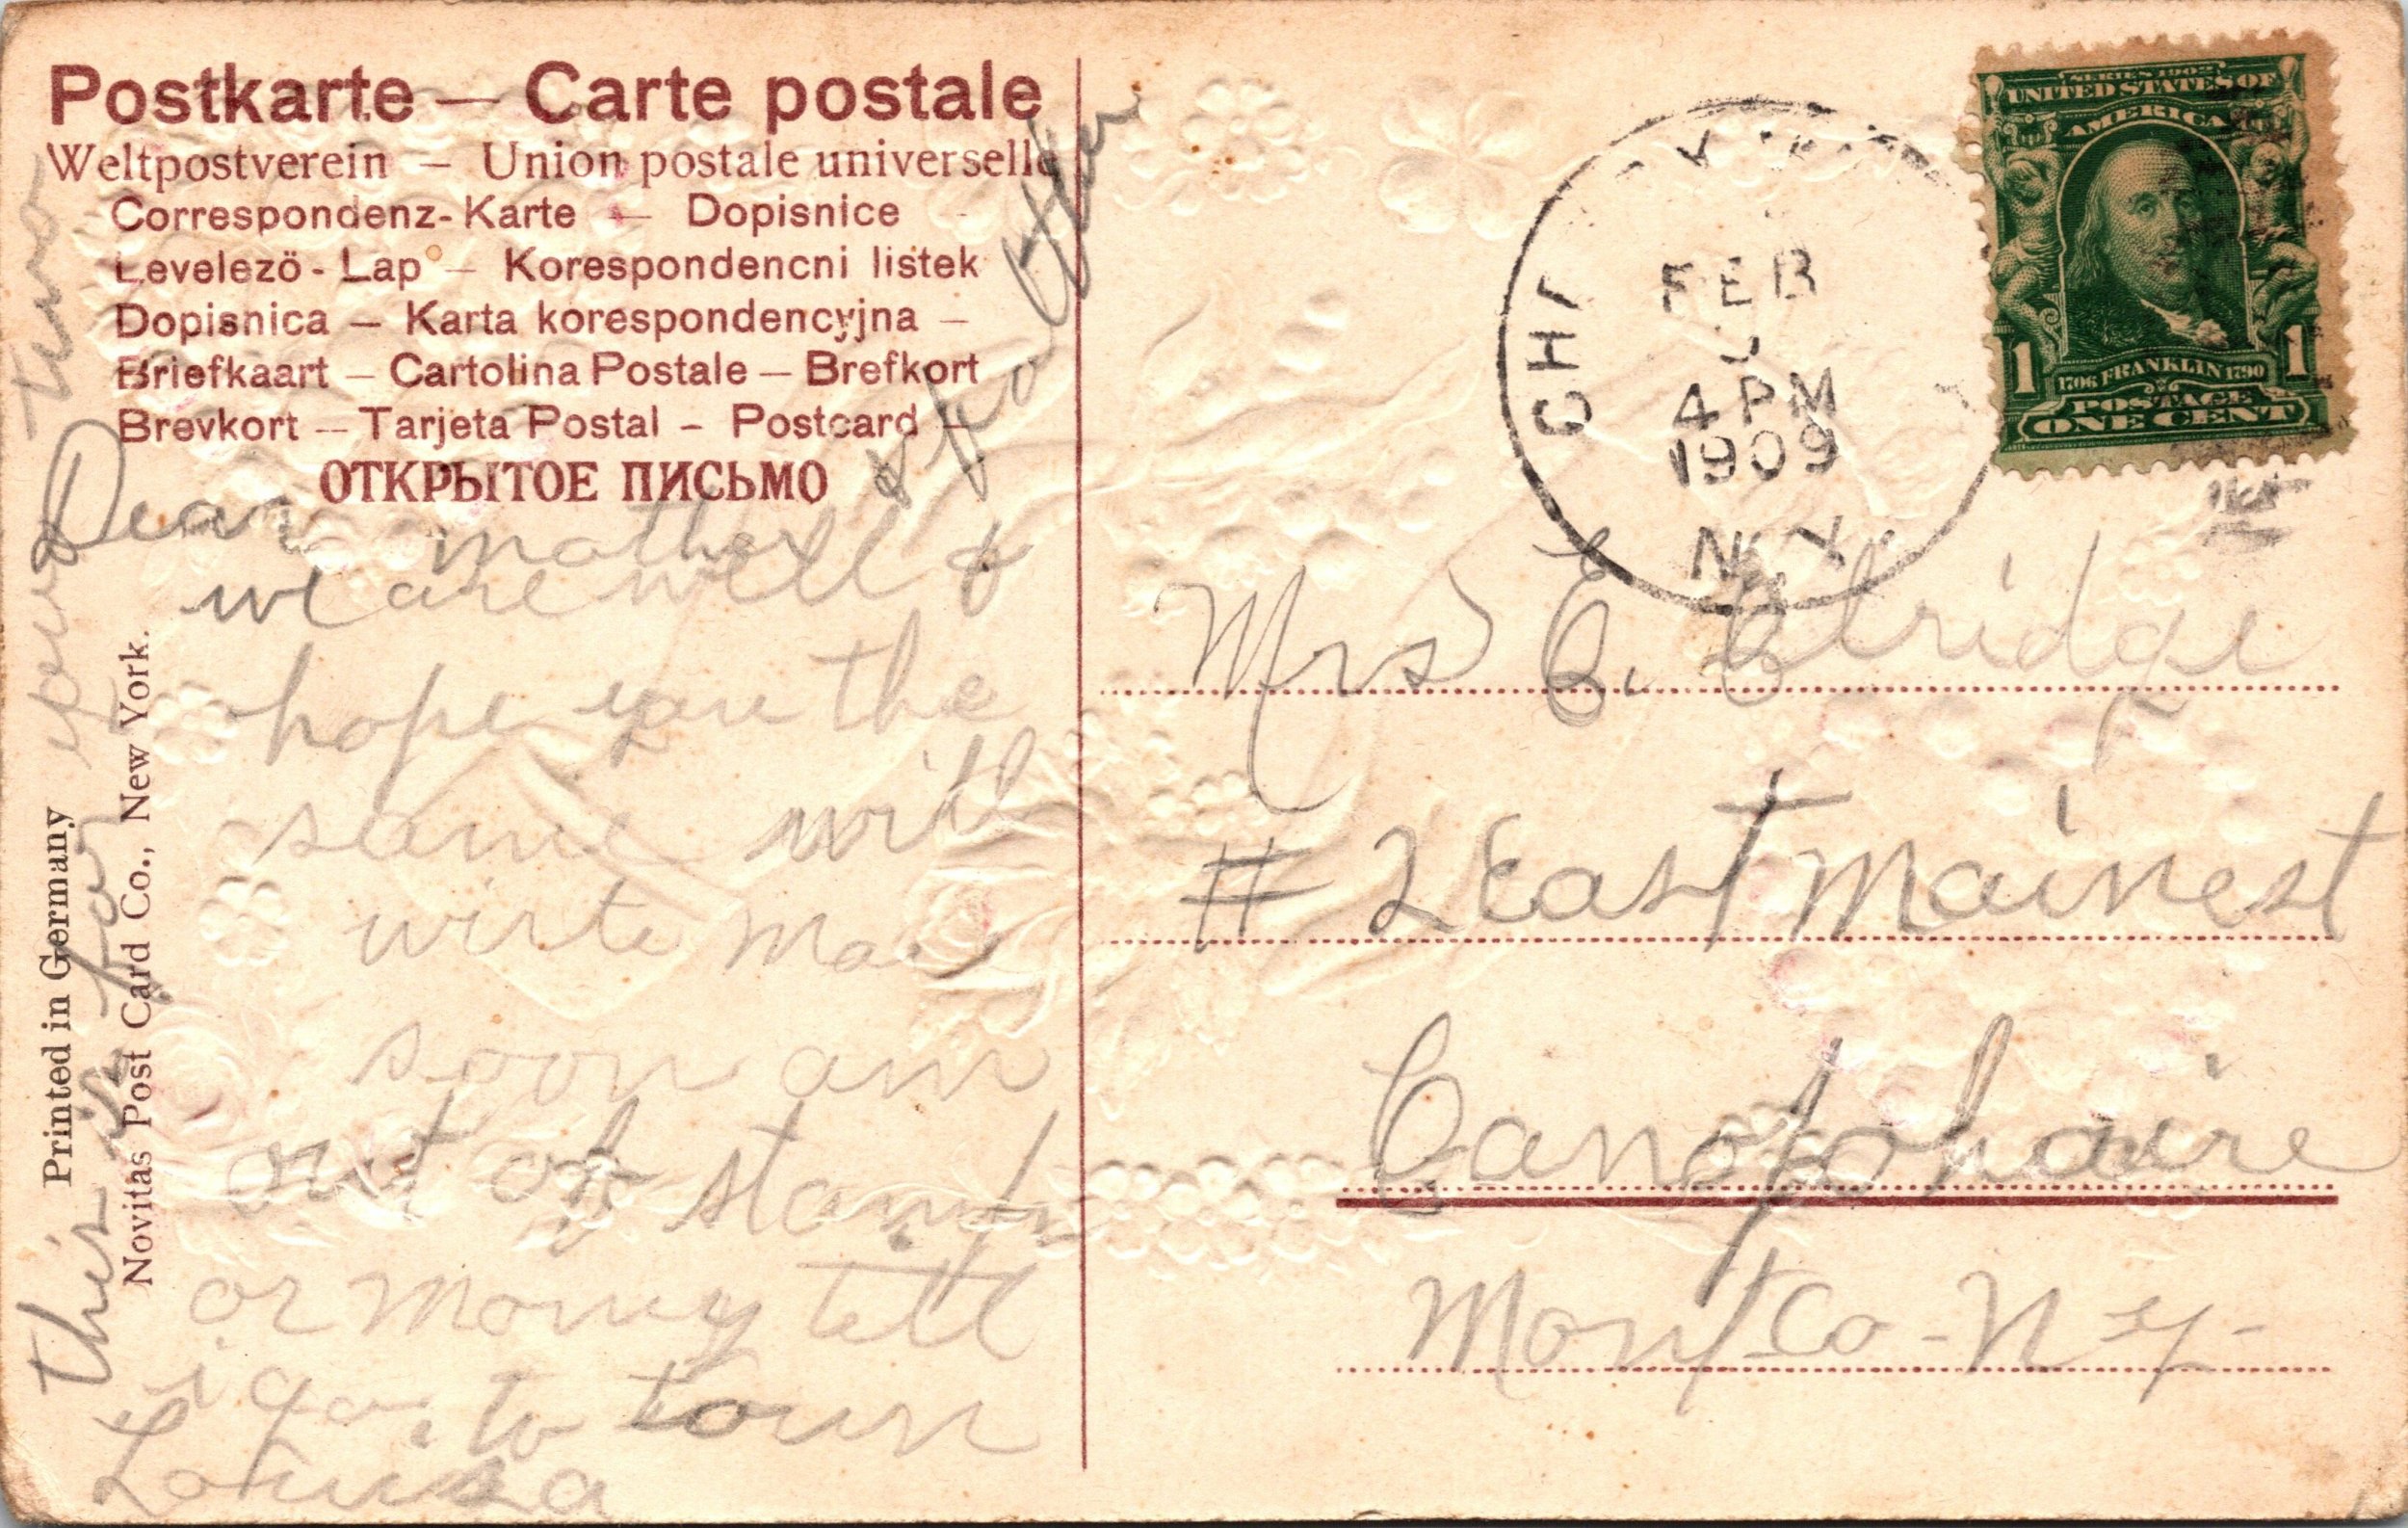 Postkarte — Carte postale
Weltpostverein — Union postale universelle
Correspondenz-Karte — Dopisnice
Levelező-Lap — Korespondencni listek
Dopisnica — Karta korespondencyjna —
Briefkaart — Cartolina Postale — Brefkort
Brevkort — Tarjeta Postal - Postcard -
ОТКРЫТОЕ ПИСЬМО
Dear mother
we are well &
hope you the
same will
wirte mor
soon am
out of stamps
or money tell
i go to town
Louisa
this is for your two
& father
Printed in Germany
Novitas Post Card Co., New York.
FEB
4 PM
1909
N.Y.
SERIES 1902
UNITED STATES OF
AMERICA
1 1
1706 FRANKLIN 1790
POSTAGE
ONE CENT
Mrs E. Elridge
# 2 East Maine st
Canojoharie
Mont Co - N y -